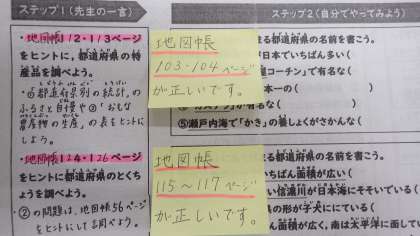 ステップ1(先生の一言)
・地図帳112・113ページ
をヒントに、都道府県の特
産品を調べよう。
しよう。
・地図帳124・126ページ
をヒントに都道府県のとくち
ょうを調べよう。
②の問題は、地図帳56ペ
ージをヒントにして調べよう。
地図帳
103・104ページ
が正しいです。
地図帳
115~117ページ
が正しいです。
ステップ2(自分でやってみよう)
る都道府県の名前を書こう。
が日本でいちばん多い(
屋コーチン」で有名な(
本一の(
」が有名な(
⑤瀬戸内海で「かき」の養しょくがさかんな(
る都道府県の名前を書こう。
ちばん面積が広い(
い信濃川が日本海にそそいでいる(
の形が子犬ににている(
ばん面積が広く、南は太平洋に面してい